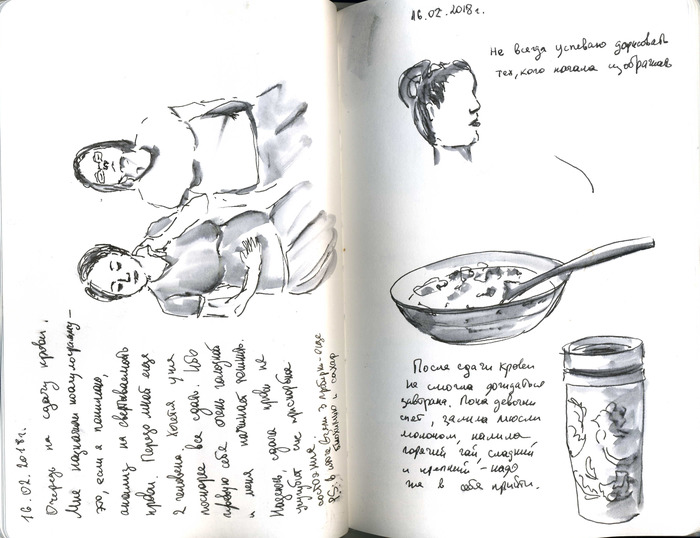 16.02.2018г.
Очередь на сдачу крови.
Мне назначили коагулограмму –
это, если я понимаю,
анализ на свертываемость
крови. Передо мной еще
2 человека. Хочется уже
поскорее все сдать. Ибо
чувствую себя очень голодной
и меня начинает тошнить.
Надеюсь, сдача крови не
ухудшит мое
состояние
P.S. в итоге взяли 3 пробирки - еще
биохимию и сахар
16.02.2018г.
Не всегда успеваю дорисовать
тех, кого начала изображать
После сдачи крови
не смогла дождаться
завтрака. Пока девочки
спят, залила мюсли
молоком, налила
горячий чай, сладкий
и крепкий – надо
же в себя прийти.